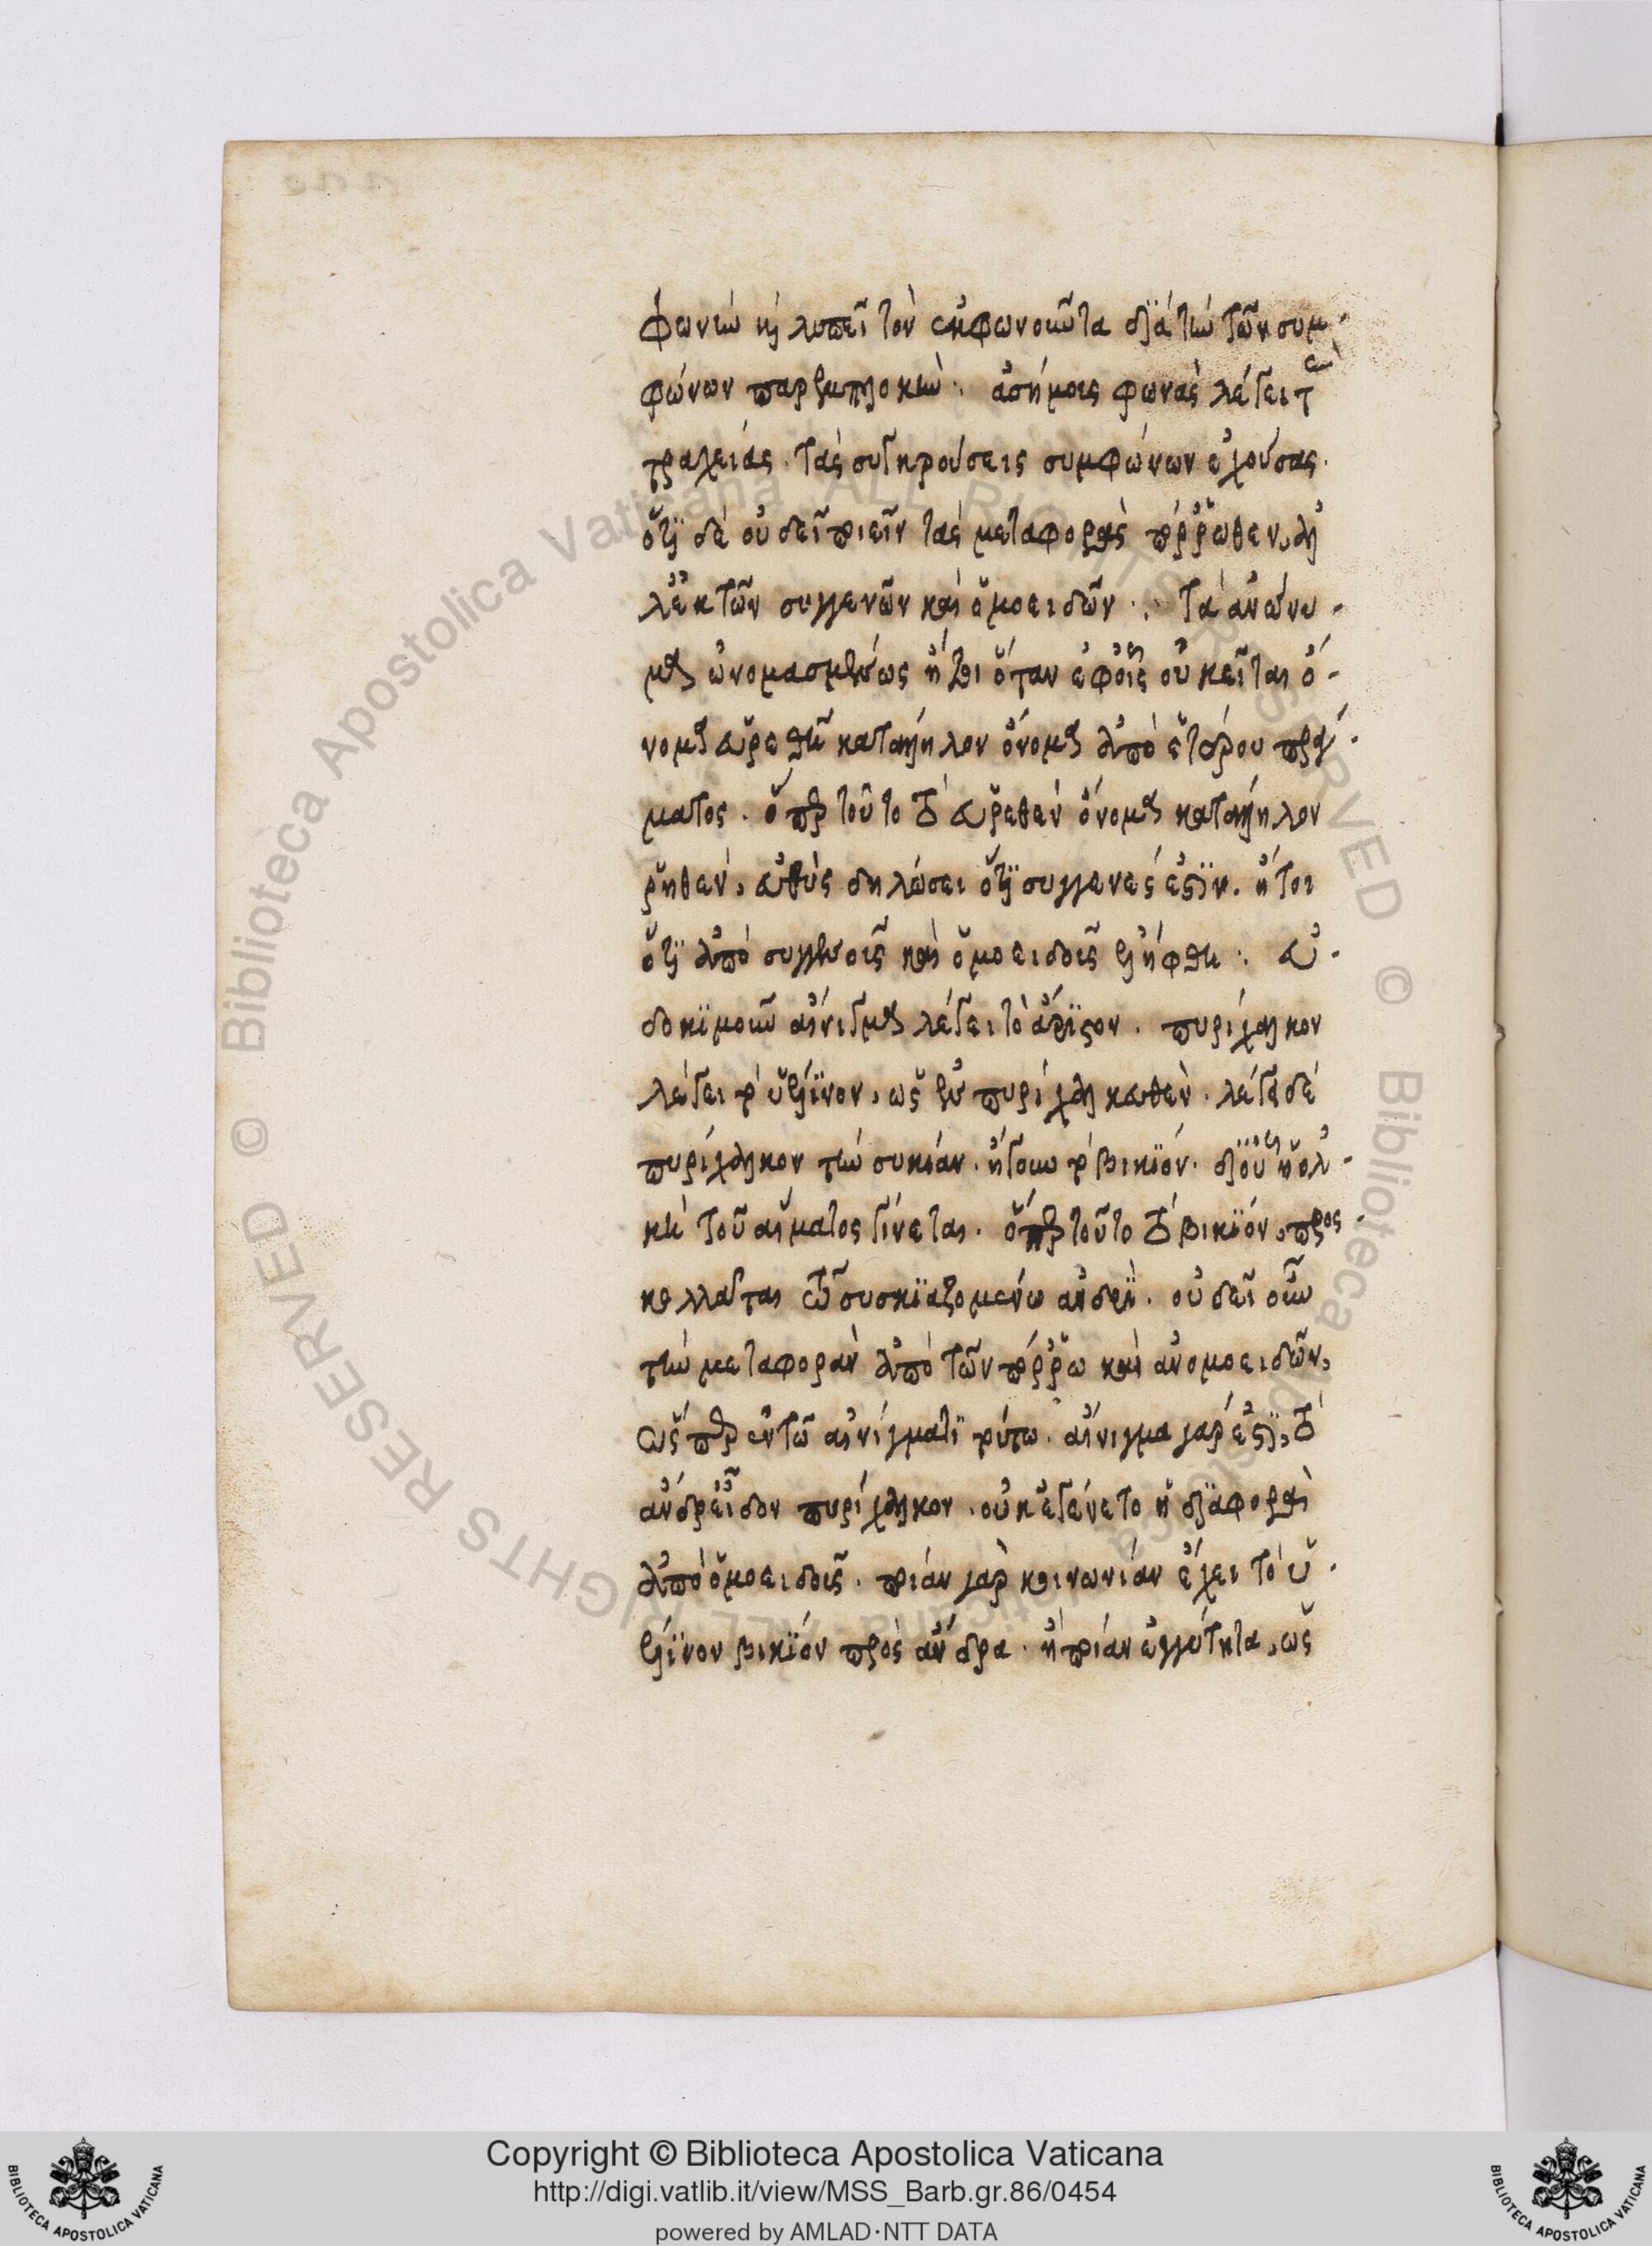 φωνὴν καὶ λυπεῖ τὸν ἐκφωνοῦντα διὰ τὴν τῶν συμ-
φώνων παρεμπλοκήν· ἀσήμοις φωνὰς λέγει τὰς
τραχείας. τὰς συγκρούσεις συμφώνων ἐχούσας.
ὅτι δὲ οὐ δεῖ ποιεῖν τὰς μεταφορὰς πόρρωθεν, ἀλ
λ' ἐκ τῶν συγγενῶν καὶ ὁμοειδῶν · τὰ ἀνώνυ-
μα ὠνομασμένως ἤτοι ὅταν ἐφ' οἷς οὐ κεῖται ὄ-
νομα εὑρεθῇ κατάλληλον ὄνομα ἀπὸ ἑτέρου πράγ-
ματος. ὅπερ τοῦτο τὸ εὑρεθὲν ὄνομα κατάλληλον
ῥηθὲν, εὐθὺς δηλώσει ὅτι συγγενές ἐστιν. ἤτοι
ὅτι ἀπὸ συγγενοῦς καὶ ὁμοειδοῦς ἐλήφθη · εὐ-
δοκιμοῦν αἴνιγμα λέγει τὸ ἄριστον. πυρίχαλκον
λέγει τὸ ὑέλινον, ὡς ἐν πυρὶ χαλκευθέν. λέγει δὲ
πυρίχαλκον τὴν συκίαν. ἤγουν τὸ βικίον. δι' οὗ ἡ ὁλ-
κὴ τοῦ αἵματος γίνεται. ὅπερ τοῦτο τὸ βικίον, προσ-
κολλᾶται τῷ συσκιαζομένῳ ἀνδρί. οὐ δεῖ οὖν
τὴν μεταφορὰν ἀπὸ τῶν πόρρω καὶ ἀνομοειδῶν,
ὥσπερ ἐν τῷ αἰνίγματι τούτω. αἴνιγμα γάρ ἐστι, τὸ
ἄνδρ' εἶδον πυρίχαλκον. οὐκ ἐγένετο ἡ διαφορὰ
ἀπὸ ὁμοειδοῦς. ποίαν γὰρ κοινωνίαν ἔχει τὸ ὑ-
έλινον βικίον πρὸς ἄνδρα. ἢ ποίαν ἐγγύτητα, ὡς
Copyright © Biblioteca Apostolica Vaticana
http://digi.vatlib.it/view/MSS_Barb.gr.86/0454
powered by AMLAD·NTT DATA